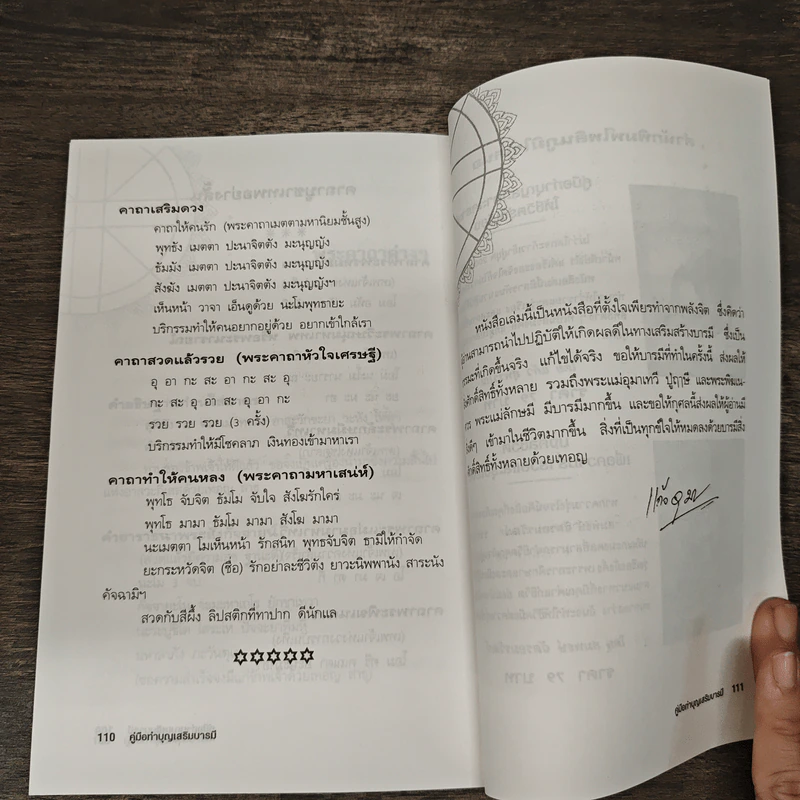 คาถาเสริมดวง
คาถาให้คนรัก (พระคาถาเมตตามหานิยมชั้นสูง)
พุทธัง เมตตา ปะนาจิตตัง มะนุญญัง
ธัมมัง เมตตา ปะนาจิตตัง มะนุญญัง
สังฆัง เมตตา ปะนาจิตตัง มะนุญญังฯ
เห็นหน้า วาจา เอ็นดูด้วย นะโมพุทธายะ
บริกรรมทำให้คนอยากอยู่ด้วย อยากเข้าใกล้เรา
คาถาสวดแล้วรวย (พระคาถาหัวใจเศรษฐี)
อุ อา กะ สะ อา กะ สะ อุ
กะ สะ อุ อา สะ อุ อา กะ
รวย รวย รวย (3 ครั้ง)
บริกรรมทำให้มีโชคลาภ เงินทองเข้ามาหาเรา
คาถาทำให้คนหลง (พระคาถามหาเสน่ห์)
พุทโธ จับจิต ธัมโม จับใจ สังโฆรักใคร่
พุทโธ มามา ธัมโม มามา สังโฆ มามา
นะเมตตา โมเห็นหน้า รักสนิท พุทธจับจิต ธามิให้กำจัด
ยะกระหวัดจิต (ชื่อ) รักอย่าละชีวิตัง ยาวะนิพพานัง สาระนัง
คัจฉามิฯ
สวดกับสีผึ้ง ลิปสติกที่ทาปาก ดีนักแล
110 คู่มือทำบุญเสริมบารมี
หนังสือเล่มนี้เป็นหนังสือที่ตั้งใจเพียรทำจากพลังจิต ซึ่งคิดว่า
ผู้อ่านสามารถนำไปปฏิบัติให้เกิดผลดีในทางเสริมสร้างบารมี ซึ่งเป็น
ธรรมะที่เกิดขึ้นจริง แก้ไขได้จริง ขอให้บารมีที่ทำในครั้งนี้ ส่งผลให้
ศักดิ์สิทธิ์ทั้งหลาย รวมถึงพระแม่อุมาเทวี ปู่ฤาษี และพระพิฆเณ
พระแม่ลักษมี มีบารมีมากขึ้น และขอให้กุศลนี้ส่งผลให้ผู้อ่านมี
เข้ามาในชีวิตมากขึ้น สิ่งที่เป็นทุกข์ใจให้หมดลงด้วยบารมีสิ่ง
ศักดิ์สิทธิ์ทั้งหลายด้วยเทอญ
คู่มือทำบุญเสริมบารมี 111